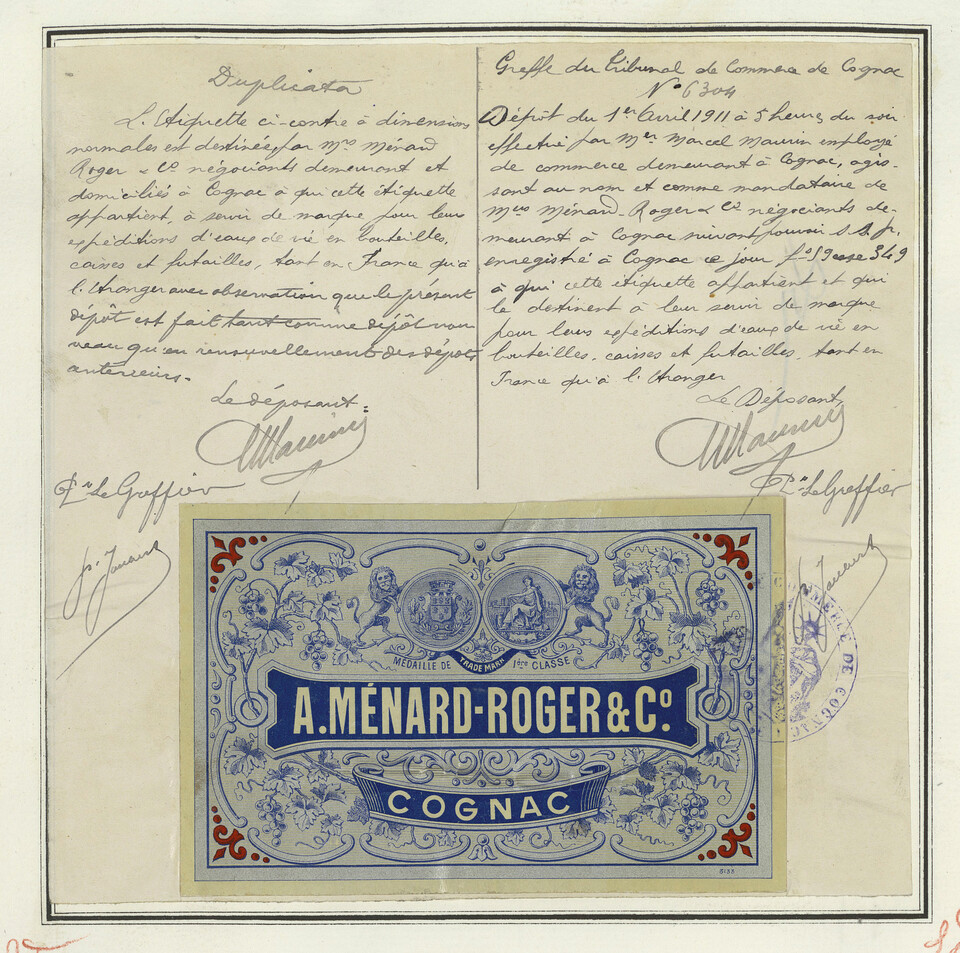 Duplicata
L'Etiquette ci-contre à dimensions
normales est destinée, par Mrs Ménard
Roger & Co négociants demeurant et
domiciliés à Cognac à qui cette étiquette
appartient, à servir de marque pour leurs
expéditions d'eaux de vie en bouteilles,
caisses et futailles, tant en France qu'à
l'Etranger avec observation que le présent
dépôt est fait tant comme dépôt nou
veau qu'en renouvellement des dépôts
antérieurs.
Le déposant:
MMaurin
Pr Le Greffier
Greffe du Tribunal de Commerce de Cognac
No 6304
Dépôt du 1er Avril 1911 à 5 heures du soir
effectué par Mr Marcel Maurin employé
de commerce demeurant à Cognac, agis-
sant au nom et comme mandataire de
Mrs Ménard-Roger & Co négociants de-
meurant à Cognac suivant pouvoir s.s.p.
enregistré à Cognac ce jour fo 59 case 349
à qui cette étiquette appartient et qui
le destinent à leur servir de marque
pour leurs expéditions d'eaux de vie en
bouteilles, caisses et futailles, tant en
France qu'à l'Etranger
Le Déposant
MMaurin
Pr Le Greffier
MÉDAILLE DE TRADE MARK 1ère CLASSE
A.MÉNARD-ROGER & Co.
COGNAC
COMMERCE DE COGNAC